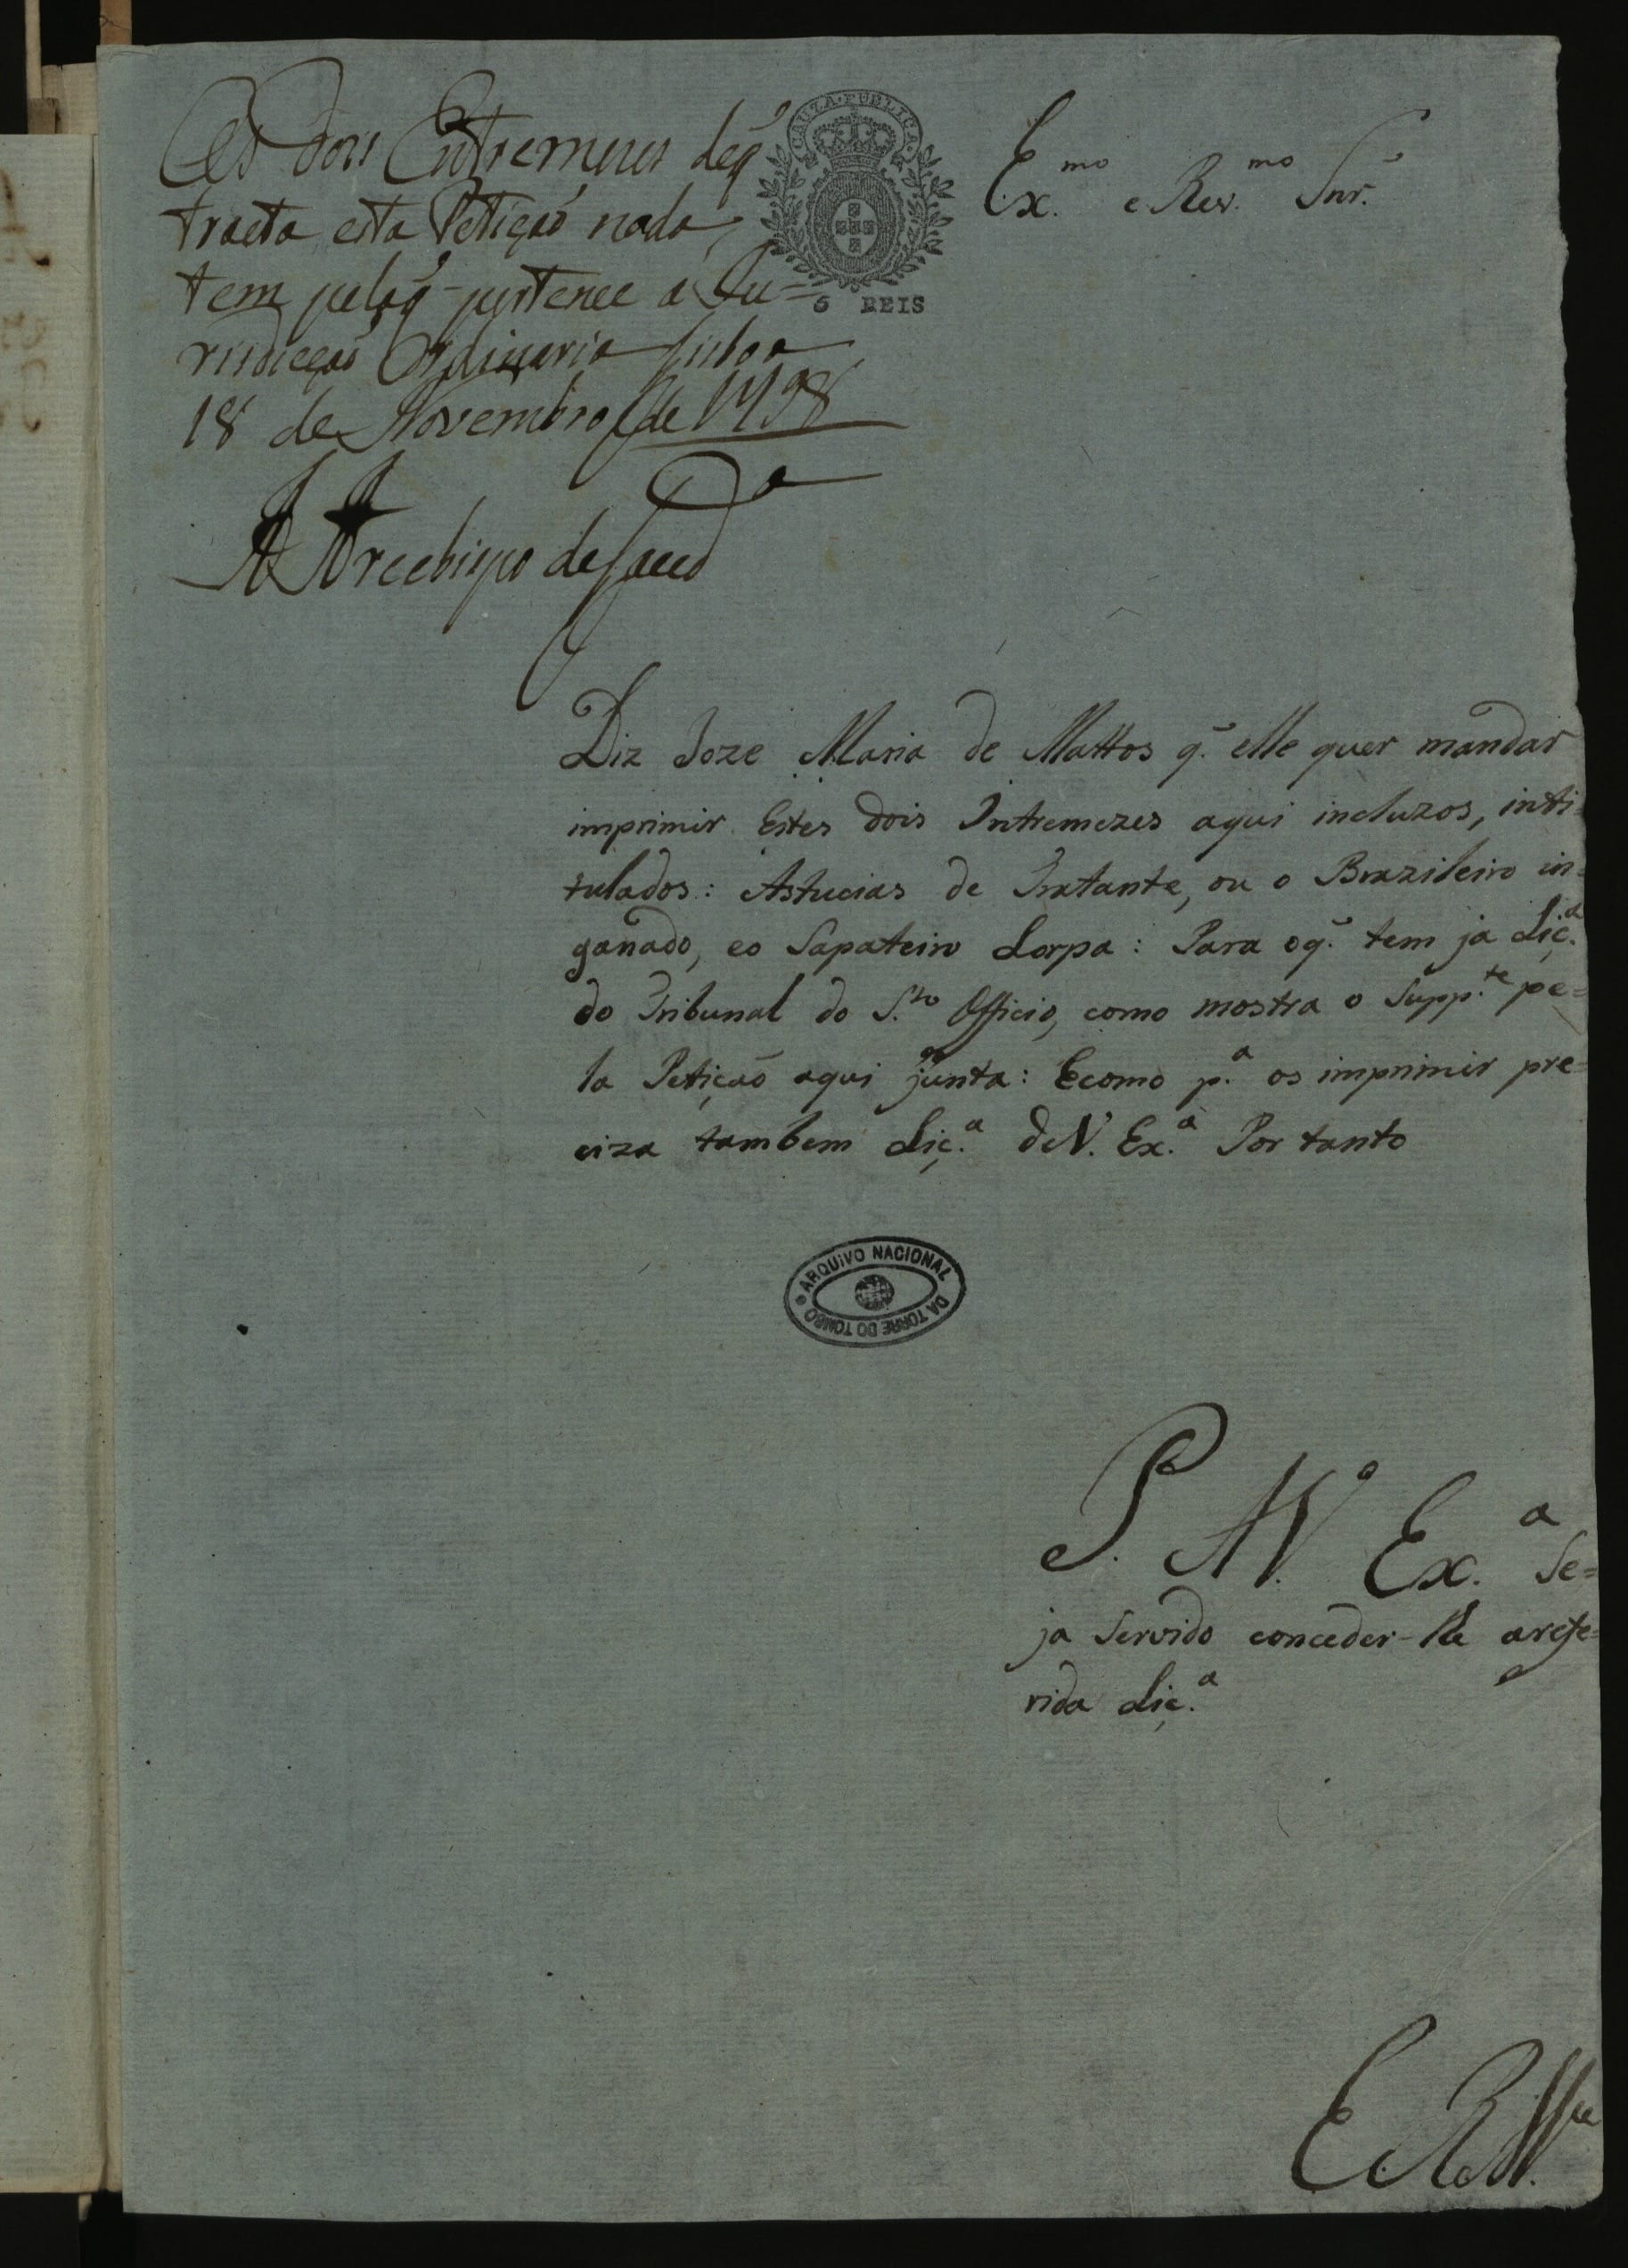 Os dois Entremezes deq̃
tracta esta Petiçaõ nada
tem peloq̃ pertence á Ju=
risdicçaõ Ordinaria Lisboa
18 de Novembro de 1798
A Arcebispo de Laced
CAUZA PUBLICA
6 REIS
Ex.mo e Rev.mo Snr.
Diz Joze Maria de Mattos q̃. elle quer mandar
imprimir Estes dois Intremezes aqui incluzos, inti
tulados: Astucias de Tratante, ou o Brazileiro in=
ganado, eo Sapateiro Lorpa: Para oq̃. tem ja Liç.a
do Tribunal do S.to Officio, como mostra o Supp.te pe=
la Petiçaõ aqui junta: Ecomo p.a os imprimir pre=
ciza tambem Liç.a deV. Ex.a Por tanto
ARQUIVO NACIONAL DA TORRE DO TOMBO
P. AV. Ex.a Se=
ja Servido conceder-lhe arefe=
rida Liç.a
E. R. M.ce